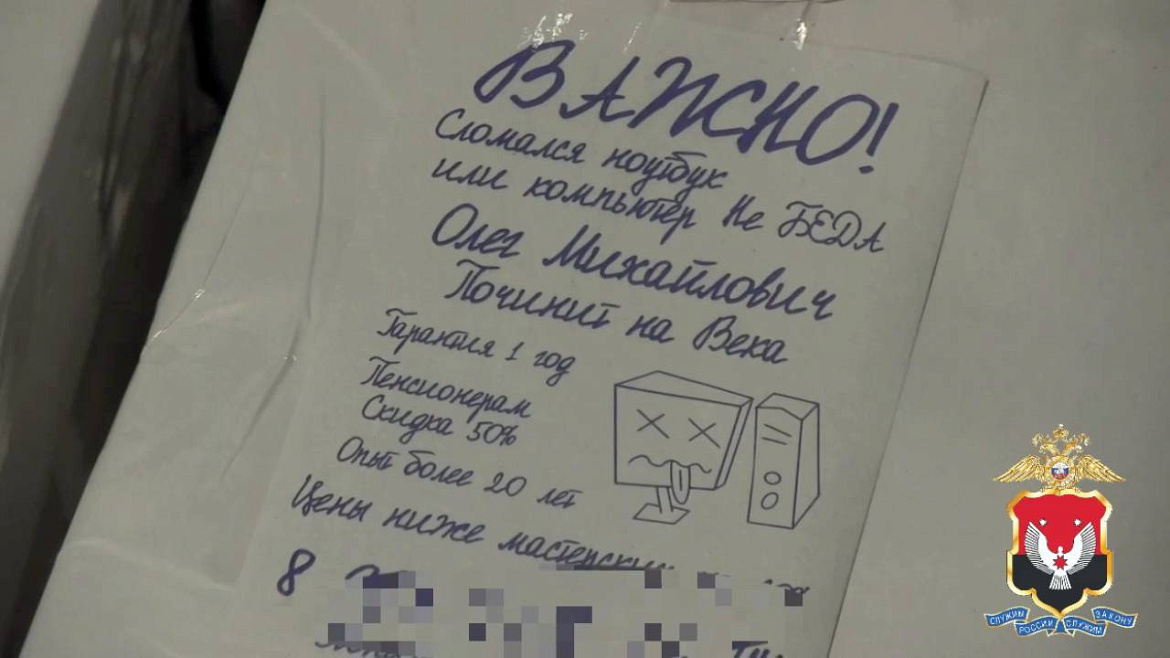 ВАЖНО!
Сломался ноутбук
или компьютер Не БЕДА
Олег Михайлович
Починит на Века
Гарантия 1 год
Пенсионерам
Скидка 50%
Опыт более 20 лет
Цены ниже
8
СЛУЖИМ РОССИИ СЛУЖИМ ЗАКОНУ